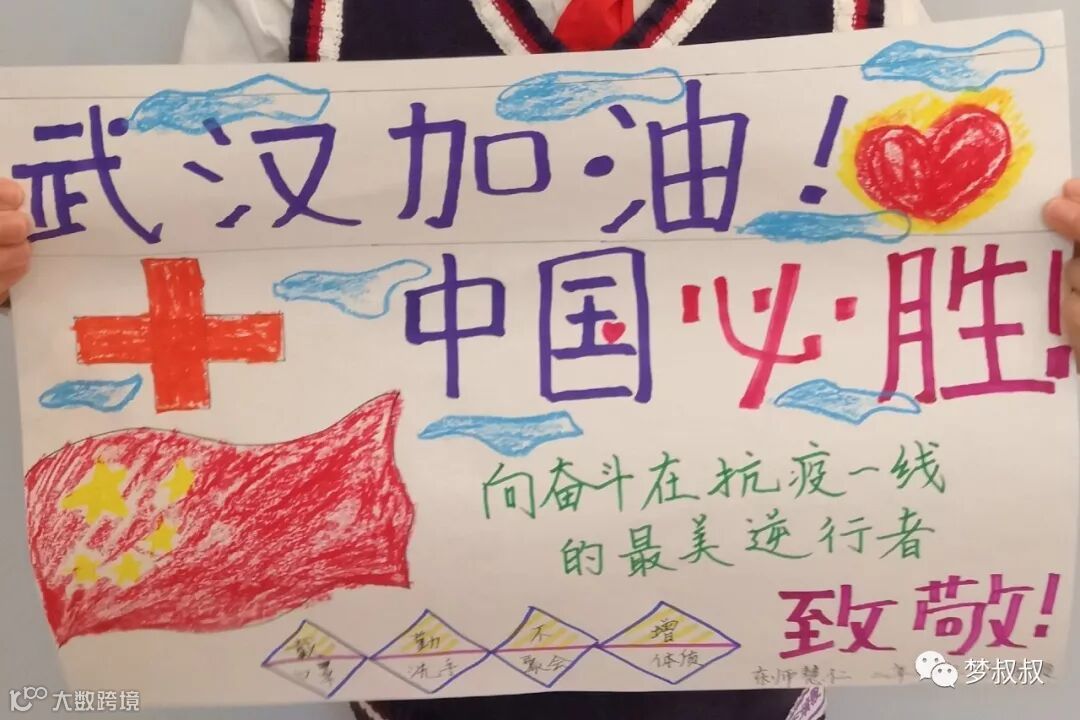 武汉加油！
中国必胜！
向奋斗在抗疫一线
的最美逆行者
致敬！
戴 勤 不 增
洗手 聚会 体质
东师慧仁
梦叔叔
大数跨境